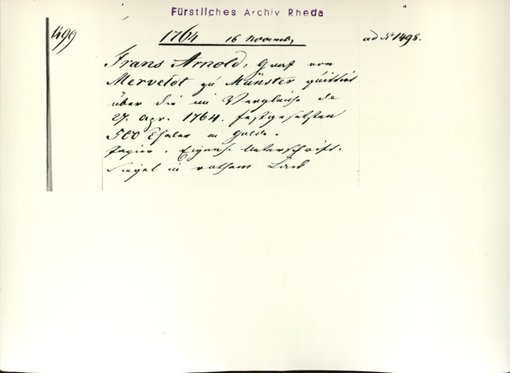 Fürstliches Archiv Rheda
1499 1764 16 novemb. ad N 1498.
Frans Arnold, Graf von
Merveldt zu Münster quittirt
über die im Vergleiche de
27. apr. 1764. festgesetzten
500 Thaler in Golde.
Papier. Eigenh. Unterschrift.
Siegel in rothem Lack